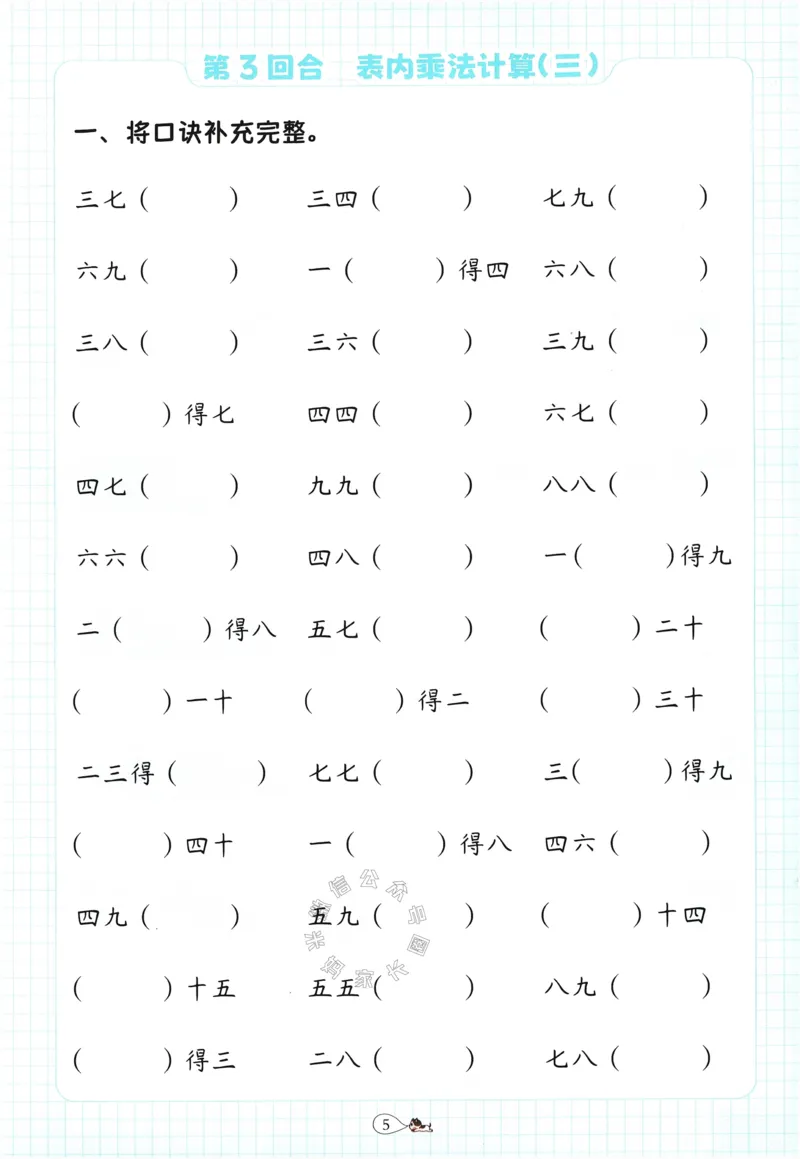 第3回合 表内乘法计算(三)
一、将口诀补充完整。
三七( ) 三四( ) 七九( )
六九( ) 一( )得四 六八( )
三八( ) 三六( ) 三九( )
( )得七 四四( ) 六七( )
四七( ) 九九( ) 八八( )
六六( ) 四八( ) 一( )得九
二( )得八 五七( ) ( )二十
( )一十 ( )得二 ( )三十
二三得( ) 七七( ) 三( )得九
( )四十 一( )得八 四六( )
四九( ) 五九( ) ( )十四
( )十五 五五( ) 八九( )
( )得三 二八( ) 七八( )
5